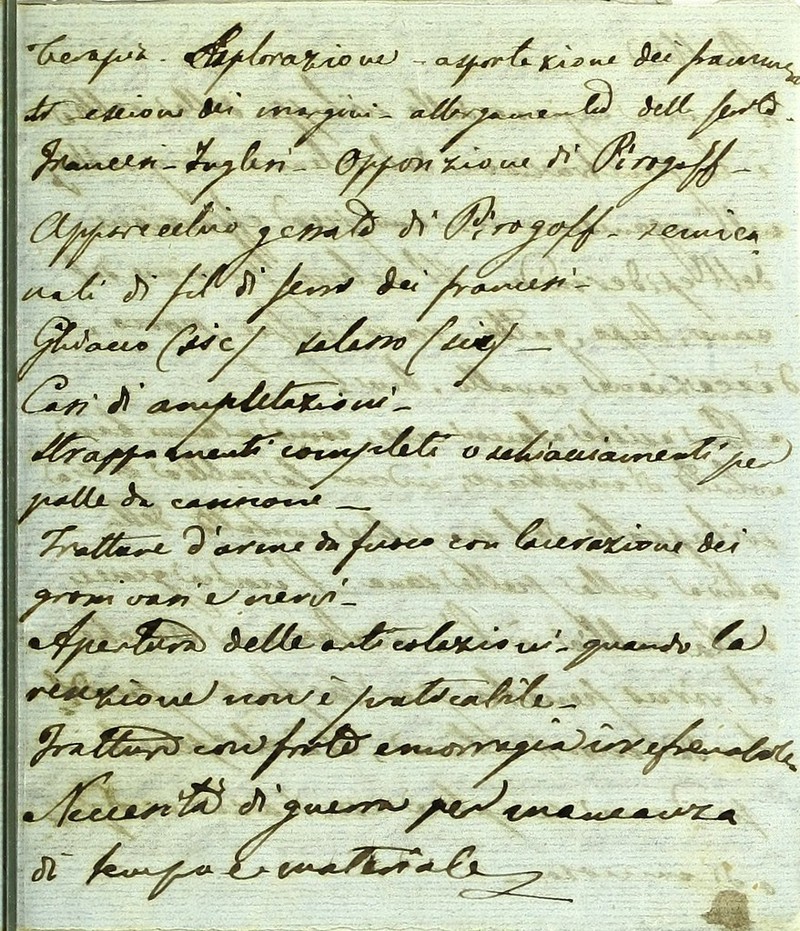 Terapia - Esplorazione - asportazione dei frammen
ti escione dei margini - allargamento dell ferita -
Francesi - Inglesi - Opposizione di Pirogoff -
Apparecchio gessato di Pirogoff - semica
nali di fil di ferro dei francesi -
Ghiaccio (sic) salasso (sic) -
Casi di amputazioni -
Strappamenti completi o schiacciamenti per
palle da cannone -
Fratture d'arme da fuoco con lacerazione dei
grossi vasi e nervi -
Apertura delle articolazioni - quando la
resezione non è praticabile -
Frattura con forte emorragia irrefrenabile -
Necessità di guerra per mancanza
di tempo e materiale